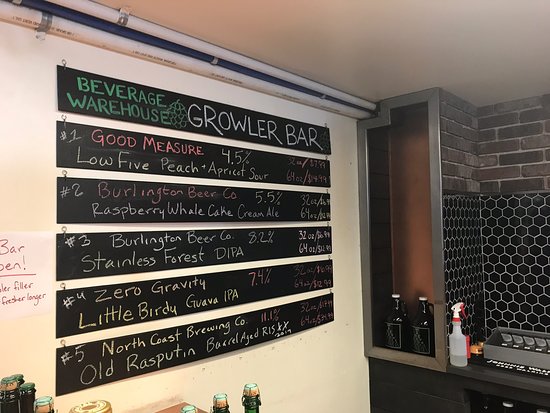 BEVERAGE
WAREHOUSE
GROWLER BAR
#1 GOOD MEASURE 4.5% 32oz/$7.99
Low Five Peach + Apricot Sour 64oz/$14.99
#2 Burlington Beer Co. 5.5% 32oz/
Raspberry Whale Cake Cream Ale 64oz/
#3 Burlington Beer Co. 8.2% 32oz/
Stainless Forest DIPA 64oz/$12.99
#4 Zero Gravity 7.4% 32oz/
Little Birdy Guava IPA 64oz/$12.99
#5 North Coast Brewing Co. 11.1% 32oz/
Old Rasputin Barrel Aged RIS XX 2019 64oz/
Bar
filler
fresher longer